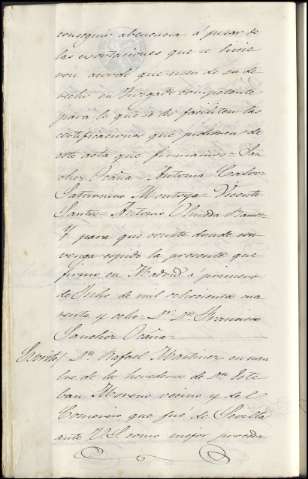 conseguir abenencia á pesar de
las exortaciones que se hicie
ron acordó que usen de su de
recho en Juzgado competente
para lo que se les faciliten las
certificaciones que pidieren de
esta acta que firmamos. San
chez Ocaña = Antonio Calvo =
Saturnino Montoya = Vicente
Santos = Antonio Olmeda Ramos
Y para que conste donde con
venga espido la presente que
firmo en Madrid á primero
de Julio de mil ochocientos cua
renta y ocho = Dr. Dn.
Sanchez Ocaña =
Escrito / Dn. Rafael Martinez en nom
bre de los herederos de Dn. Este
ban Moreno vecino y del
Comercio que fué de Sevilla
ante V.S. como mejor proceda